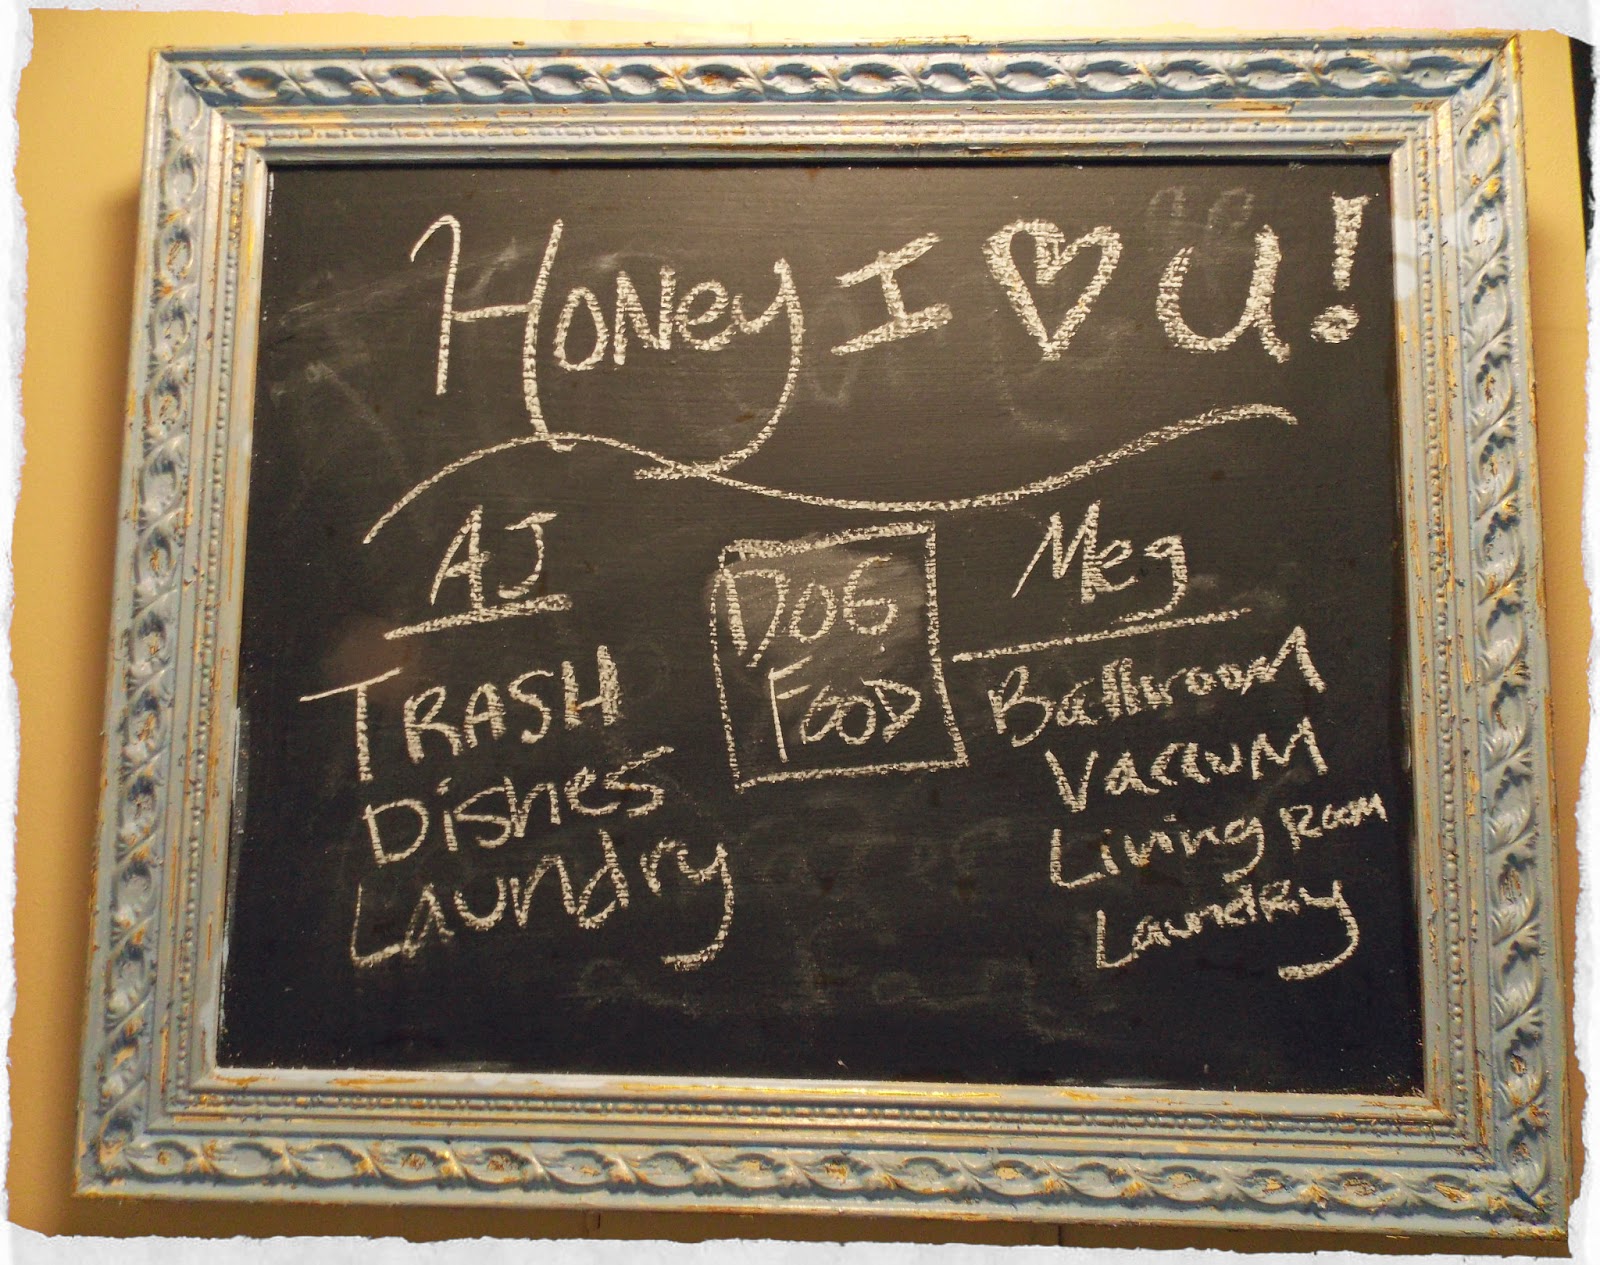 Honey I ♥ U!
AJ
TRASH
Dishes
Laundry
DOG
FOOD
Meg
Bathroom
Vaccum
Living Room
Laundry